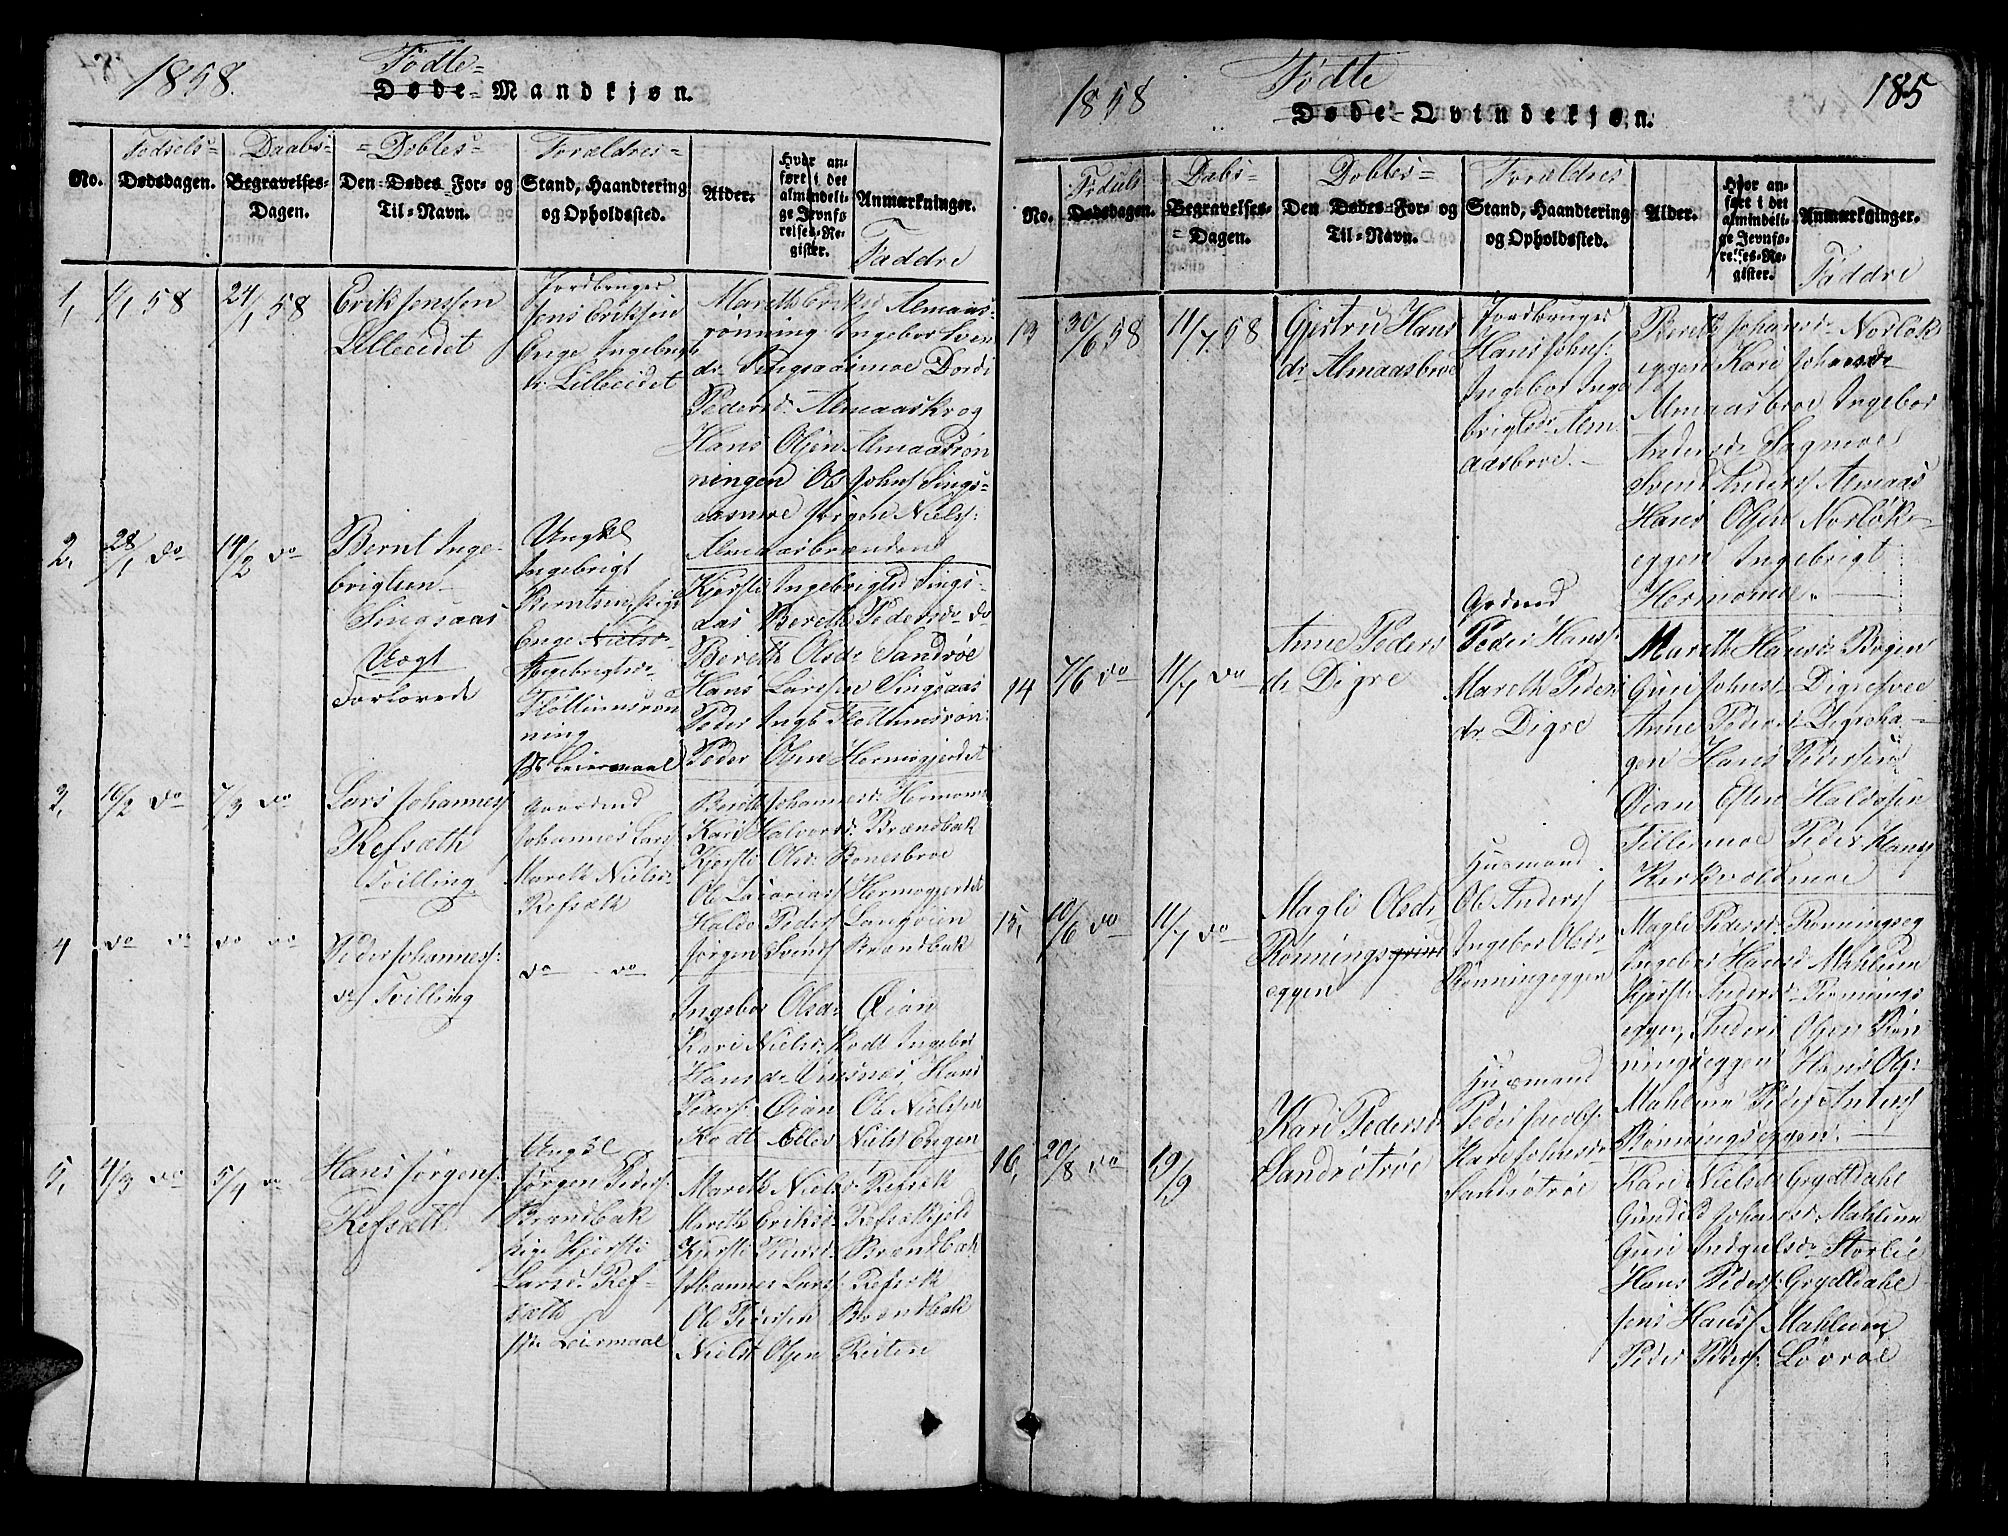 1858.
Fødte
Døde-Mandkjøn.
Fødsels=
Daabs=
Dobtes=
Forældres=
No.
Dødsdagen.
Begravelses-
Dagen.
Den Dødes For- og
Til-Navn.
Stand, Haandtering
og Opholdssted.
Alder.
Hvor an-
ført i det
almindeli-
ge Jevnfø
relses-Re-
gister.
Anmærkninger.
Faddre
1,
1/1 58
24/1 58
Erik Jenssen
Lilleeidet
Jordbruger
Jens Eriksen
Enge Ingebrigts
dr Lilleeidet
Mareth Eriksd Almaas-
rønning Ingebor Svens
dr Singsaasmoe Dordi
Pedersd. Almaaskrog
Hans Olsen Almaasrøn
ningen Ole Johns Sings=
aasmoe Jørgen Niels:
Almaasbrænden
2,
28/1 do
14/2 do
Bernt Inge-
brigtsen
Singsaas
Uægt
Forlovede
Ungkl
Ingebrigt
Berntsen Pige
Enge Nielsd
Ingebrigtsd.
Flottumsrøn
ning
1ste Leiermaal
Kjersti Ingebrigtsd Sings-
aas Bereth Pedersd do
Bereth Olsdr Sandrøe
Hans Larssen Singsaas
Peder Ingb Flottumsrøn-
Peder Olsen Hermogjerdet
3,
16/2 do
7/3 do
Lars Johannes
Refsæth
Tvilling
Gaardmd
Johannes Lars
Mareth Nielsd.
Refsæth
Bereth Johannesd. Hermoms
Kari Halvorsd. Brændbak
Kjersti Olsd. Bonesbroe
Ole Zacarias Hermogjerdet
Haldo Peders Langøien
Jørgen Svends Brændbak
4
do do
do do
Peder Johannes:
do Tvilling
do do
Ingebor Olsdr Øian
Kari Nielsd. Kodt Ingebor
Hans dr Vinsnes, Hans
Peders. Øian Ole Nielssen
Kodt Niels Engen
5,
4/3 do
5/4 do
Hans Jørgens:
Refsæth
Ungkl
Jørgen Peders.
Brændbak
pige Kjersti
Larsd. Ref-
sæth
1ste Leiermaal
Mareth Nielsd. Refsæth
Mareth Eriksd. Refsæthjeld
Kjersti Pedersd. Brændbak
Johannes Lars Refsæth
Ole Pedersen Brændbak
Niels Olsen Reiten
1858
Fødte
185
Døde-Qvindekjøn.
Fødsels
Dabs=
Dobtes=
Forældres
No.
Dødsdagen.
Begravelses-
Dagen.
Den Dødes For- og
Til-Navn.
Stand, Haandtering
og Opholdssted.
Alder.
Hvor an-
ført i det
almindeli-
ge Jevnfø-
relses-Re-
gister.
Anmærkninger.
Faddre
13
30/6 58
11/7 58
Gjertru Hans
dr Almaasbroe
Jordbruger
Hans Johns:
Ingebor Inge
brigtsd. Alm
aasbroe.
Bereth Johansd. Norløk
eggen Kari Johansdr
Almaasbroe Ingebor
Andersd. Sagmoe
Svend Anders Almaas
Hans Olsen Norløks
eggen Ingebrigt
Hermomoe.
14
7/6 do
11/7 do
Anne Peders
dr Digre
Grdmd
Peder Hans
Mareth Peders
dr Digre
Mareth Hansd. Bogen
Guri Johnsd. Digresvee
Anne Pedersd. Digreha-
gen Hans Pedersen
Øian Esten Haldosen
Tillermoe Peder Hans
Kirkvoldmoe
15,
10/6 do
11/7 do
Magli Olsdr
Rønningsgrind
eggen
Husmand.
Ole Anders
Ingebor Olsdr
Rønningeggen
Magli Pedersd. Rønningseg
Ingebor Hansd. Mahlum
Kjersti Andersd. Rønnings
eggen, Peder Olsen Røn
ningseggen Hans Ols:
Mahlum Peder Anders
Rønningseggen.
16,
20/8 do
19/9
Kari Pedersd
Sandrøtrøe
Husmand
Peder Jacobs:
Kari Johnsdr
Sandrøtrøe
Kari Nielsd. Grytdahl
Gunild Johansd. Mahlum
Guri Indgulsd. Storlie
Hans Peders: Grytdahl
Jens Hans Mahlum
Peder Peders: Løvrøe